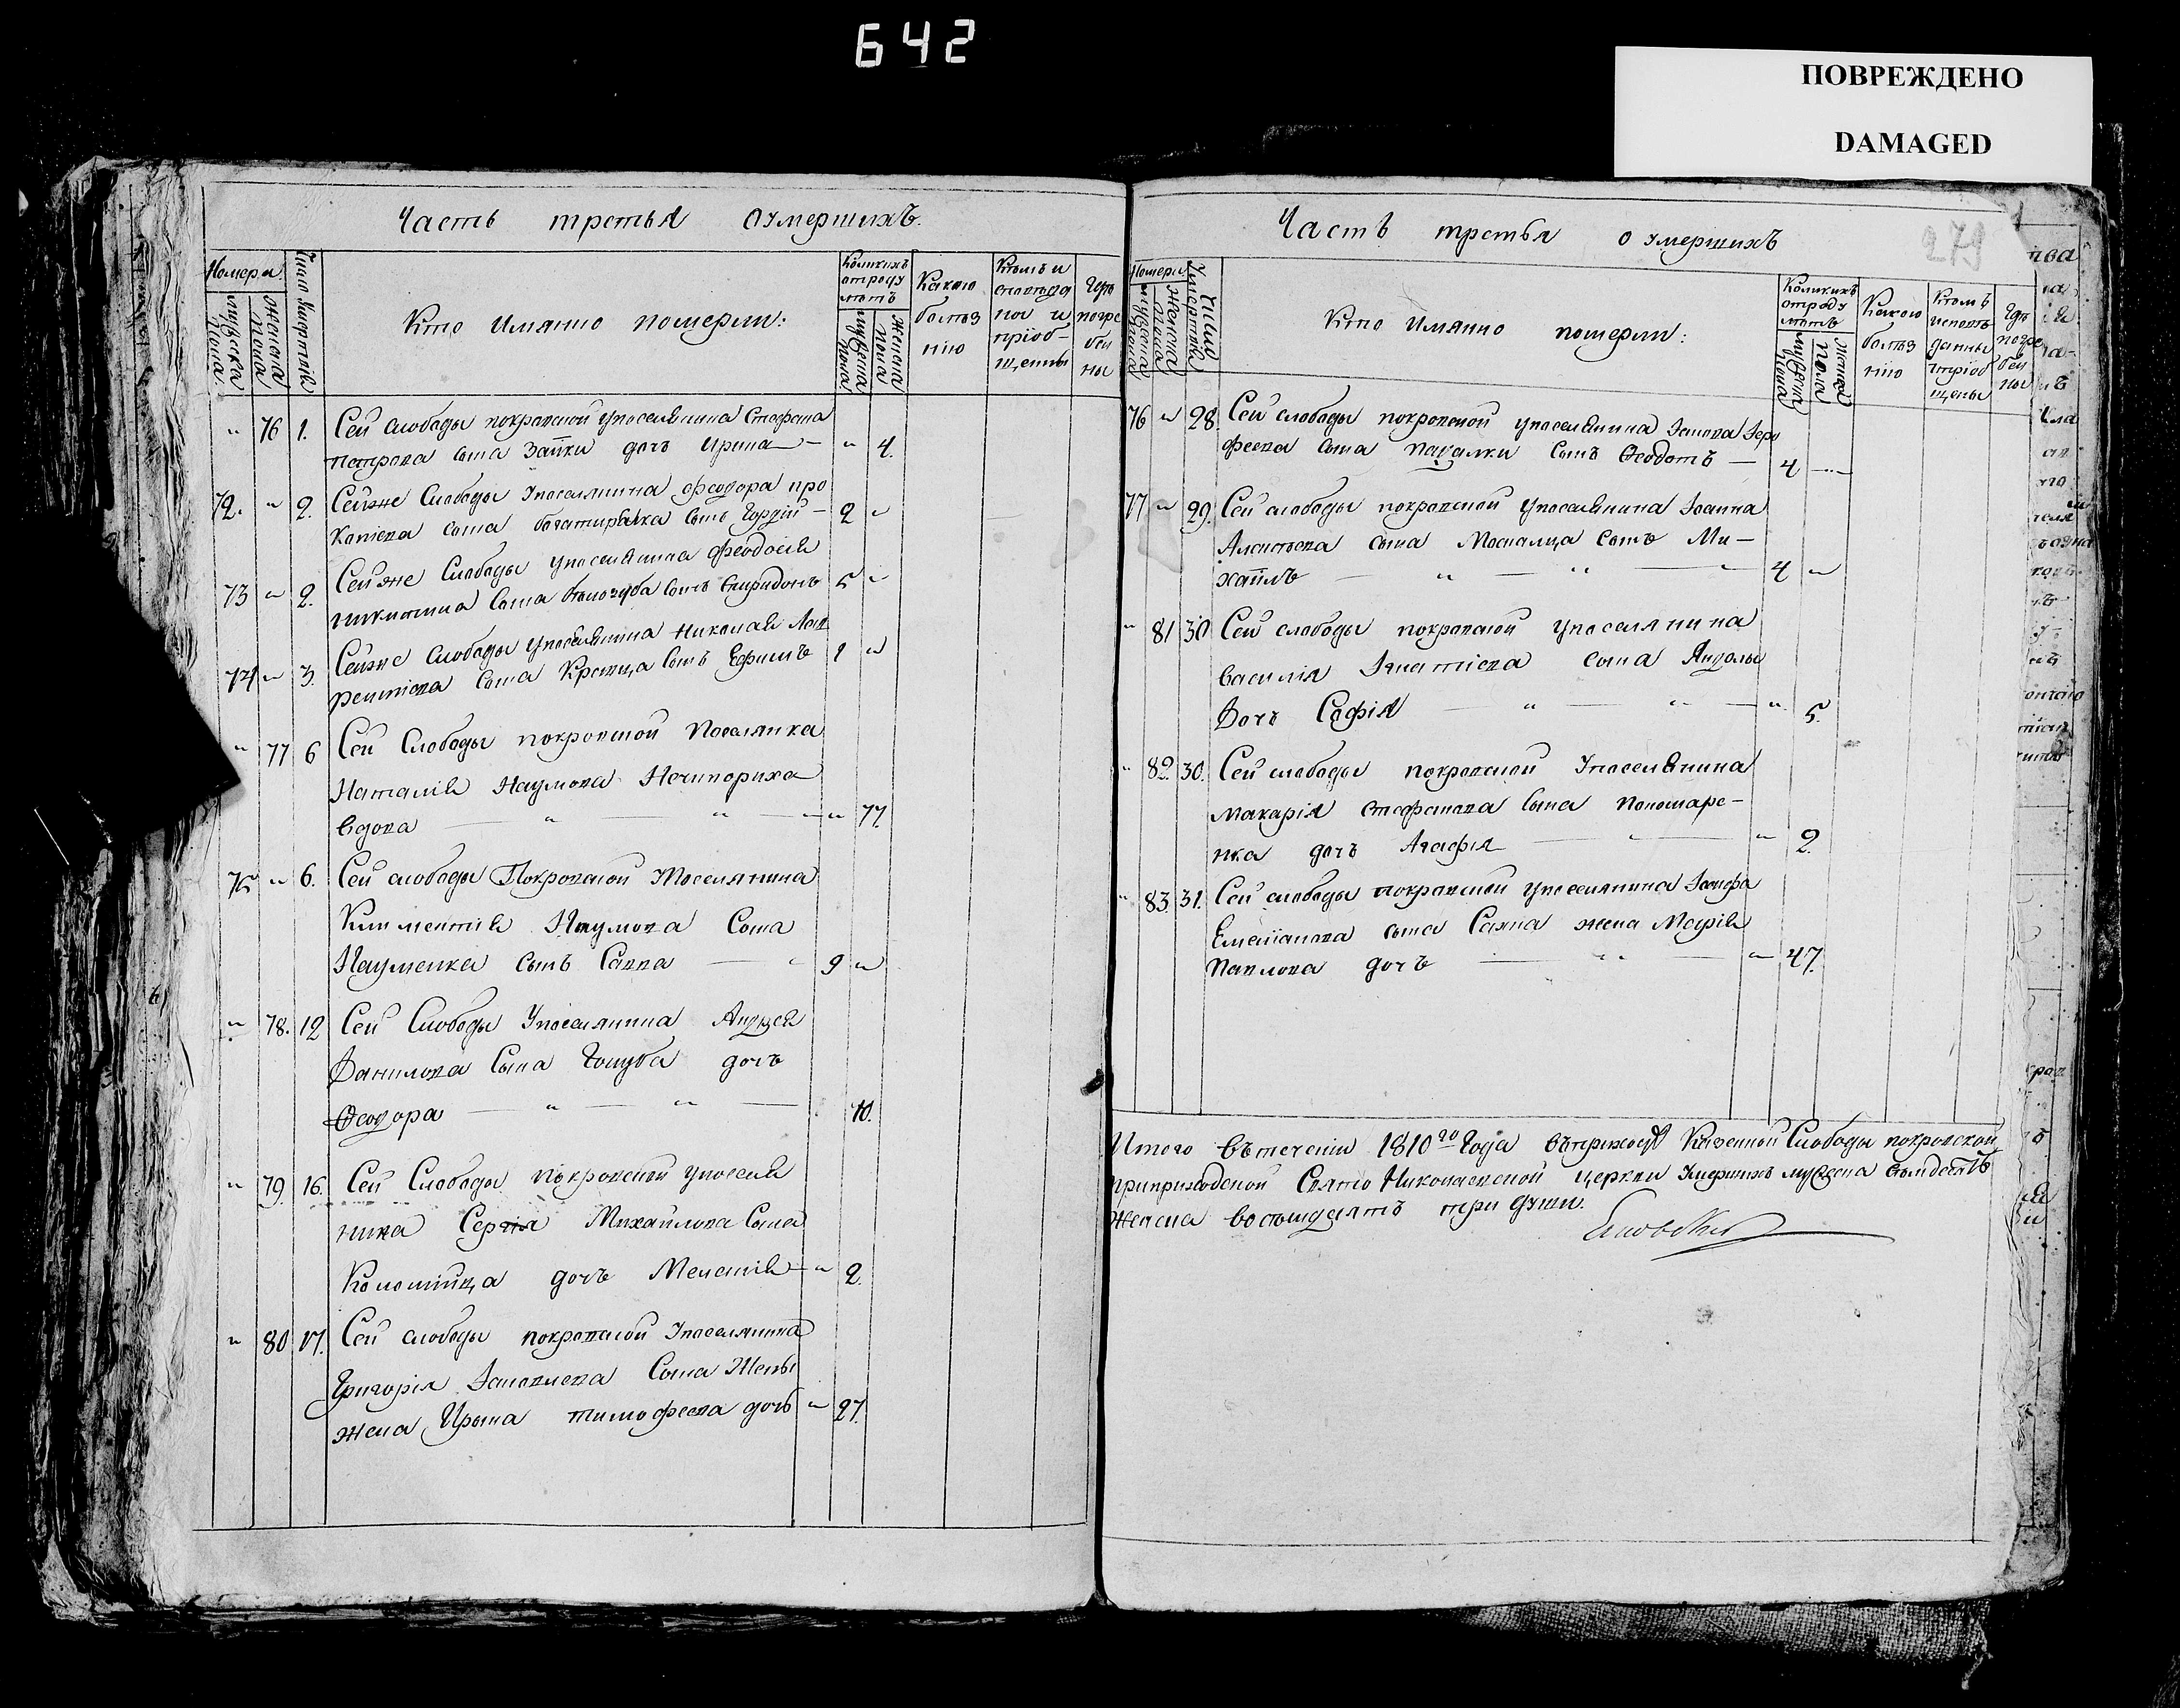 642
ПОВРЕЖДЕНО
DAMAGED
Часть третья О умершихъ.
Номера
Число умертвiя
Кто Имянно померли:
Коликихъ отроду лѣтъ
Какою болѣзнiю
Кѣмъ исповѣданы и прiобщенны
Гдѣ погребены
мужеска пола
женска пола
мужеска пола
женска пола
" 76 1. Сей слободы покровской упоселянина Стефана
Петрова сына Заики дочь Ирина — " 4.
72. " 2. Сейже Слободы Упоселянина Феодора про
копiева сына богатирка сынъ Гордiй — 2 "
73 " 2. Сейже Слободы упоселянина Феодосiя
никитина сына бѣлозуба сынъ Спиридонъ 5 "
74 " 3. Сейже Слободы упоселянина Николая Лав
рентiева Сына Кравца сынъ Ефимъ 1 "
" 77 6 Сей Слободы покровской Поселянка
Наталiя Наумова Нечипориха
вдова — " — " — " 77.
75 " 6. Сей слободы Покровской Упоселянина
Климентiя Наумова Сына
Науменка сынъ Савва — " 9 "
" 78. 12 Сей Слободы Упоселянина Андрея
Данилова Сына Голуба дочь
Ѳеодора — " — " — 10.
" 79. 16. Сей Слободы покровской упоселя
нина Сергiя Михайлова Сына
Коломiйца дочь Меланiя — " 2.
" 80 17. Сей слободы покровской Упоселянина
Григорiя Яковлева Сына
жена Ирина тимофеева дочь " 27.
Часть третья о умершихъ
279
Номера
Число Умертвiя
Кто Имянно померли:
Коликихъ отроду лѣтъ
Какою болѣзнiю
Кѣмъ исповѣданны и прiобщены
Гдѣ погребены
мужеска пола
женска пола
мужеска пола
женска пола
76 " 28. Сей слободы покровской упоселянина
феева сына сынъ Ѳеодотъ — 4 —
77 " 29. Сей слободы покровской упоселянина Iоанна
Алексѣева сына Москальца сынъ Ми-
хаилъ — " — " — " 4 "
" 81 30 Сей слободы покровской упоселянина
Василiя Игнатiева сына
Дочь Софiя — " — " — " 5.
" 82. 30. Сей слободы покровской Упоселянина
Макарiя Стефанова сына пономаре-
нка дочь Агафiя — " — " 2.
" 83. 31. Сей слободы покровской упоселянина Iосифа
Емелiанова сына жена Марiя
Павлова дочь — " " — " 47.
Итого въ теченiи 1810го Года въ приходѣ Казенной Слободы покровской
приприходской Свято Николаевской церкви Умершихъ мужеска семдесятъ
Женска восемдесятъ три души.